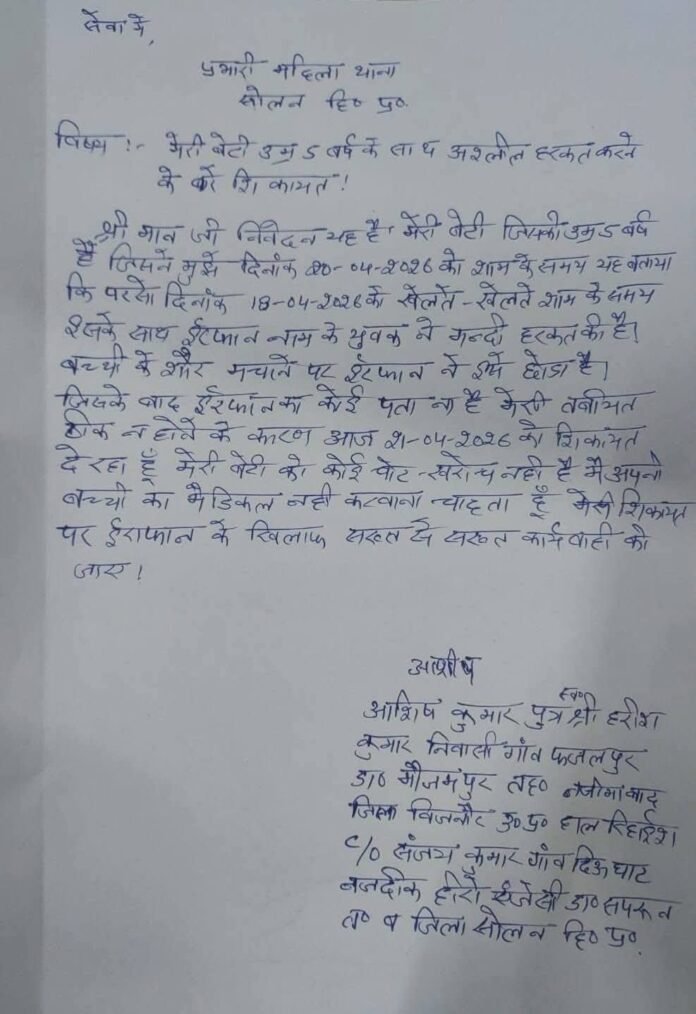 सेवा में,
प्रभारी महिला थाना
सोलन हि० प्र०.
विषय :- मेरी बेटी उम्र 5 वर्ष के साथ अश्लील हरकत करने
के बारे शिकायत !
श्री मान जी निवेदन यह है मेरी बेटी जिसकी उम्र 5 वर्ष
है जिसने मुझे दिनांक 20-04-2026 को शाम के समय यह बताया
कि परसो दिनांक 18-04-2026 को खेलते-खेलते शाम के समय
इसके साथ ईरफान नाम के युवक ने गन्दी हरकत की है।
बच्ची के शौर मचाने पर ईरफान ने इसे छोडा है।
जिसके बाद ईरफान का कोई पता ना है मेरी तबीयत
ठीक न होने के कारण आज 21-04-2026 को शिकायत
दे रहा हूँ मेरी बेटी को कोई चोट-खरोच नही है मै अपनी
बच्ची का मैडिकल नही करवाना चाहता हूँ मेरी शिकायत
पर ईराफान के खिलाफ सख्त से सख्त कार्यवाही की
जाए।
आशीष
आशिष कुमार पुत्र स्व० श्री हरीश
कुमार निवासी गाँव फजलपुर
डा० मौजमपुर तह० नजीमाबाद
जिला बिजनौर उ० प्र० हाल रिहाईश
C/o संजय कुमार गाँव दिऊघाट
नजदीक हीरो एजेंसी डा० सपरून
त० व जिला सोलन हि० प्र०.